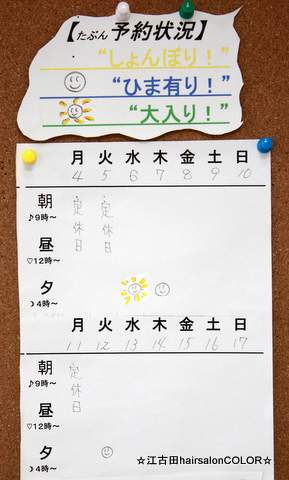 【たぶん予約状況】
“しょんぼり！”
“ひま有り！”
“大入り！”
月 火 水 木 金 土 日
4 5 6 7 8 9 10
朝
♪9時～
定休日
定休日
昼
♡12時～
夕
☽4時～
月 火 水 木 金 土 日
11 12 13 14 15 16 17
朝
♪9時～
定休日
昼
♡12時～
夕
☽4時～
☆江古田hairsalonCOLOR☆